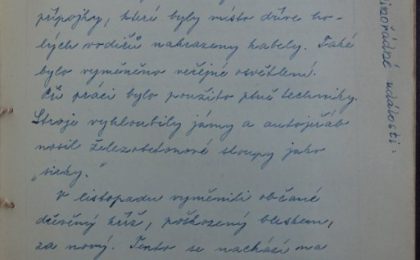 přípojky, které byly místo dříve ho-
lých vodičů nahrazeny kabely. Také
bylo vyměněno veřejné osvětlení.
Při práci bylo použito plně techniky.
Stroje vyhloubily jámy a autojeřáb
nosil železobetonové sloupy jako
"sirky."
V listopadu vyměnili občané
dřevěný kříž, poškozený bleskem,
za nový. Tento se nachází na
události.